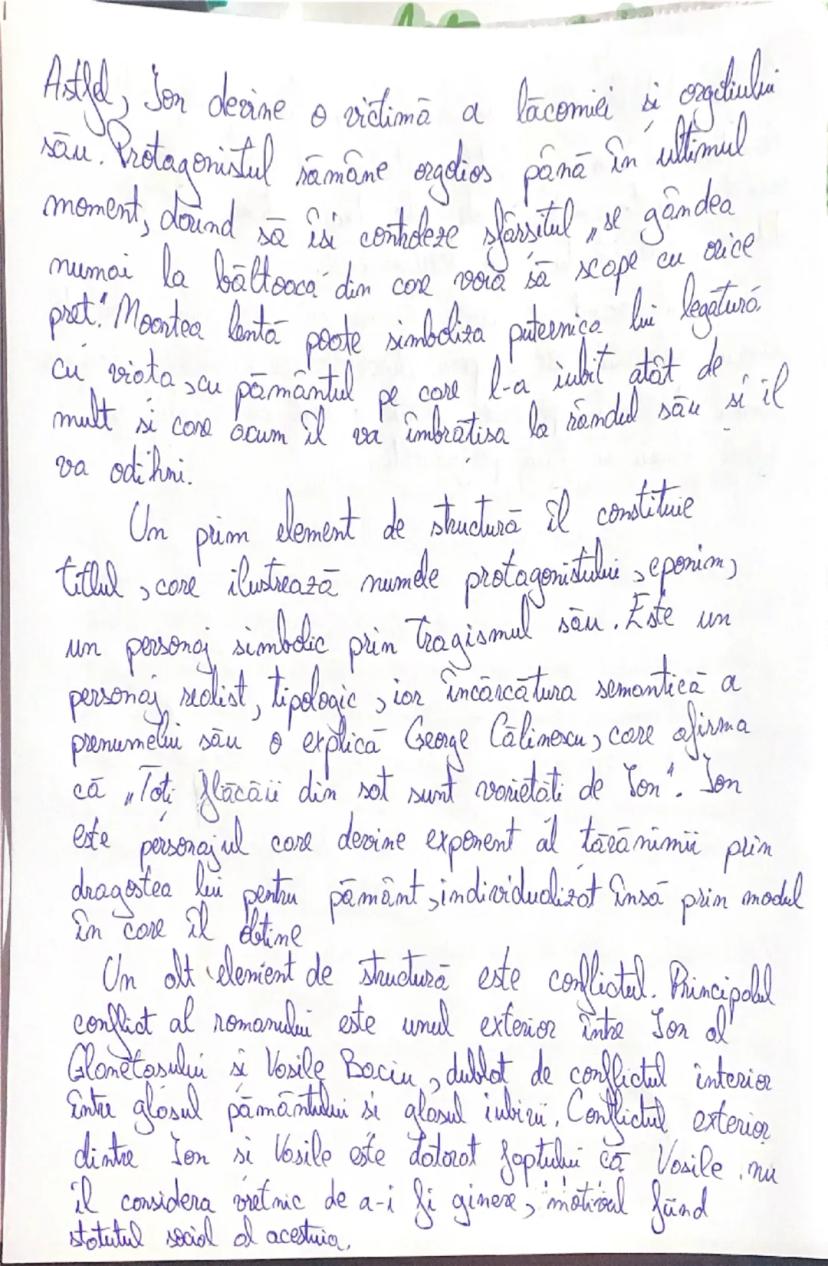 Astfel, Ion devine o victimă a lăcomiei și orgoliului
său. Protagonistul rămâne orgolios până în ultimul
moment, dorind să își controleze sfârșitul „se gândea
numai la băltoaca din care voia să scape cu orice
preț." Moartea lentă poate simboliza puternica lui legătură
cu viața, cu pământul pe care l-a iubit atât de
mult și care acum îl va îmbrățișa la rândul său și îl
va odihni.
Un prim element de structură îl constituie
titlul, care ilustrează numele protagonistului, eponim,
un personaj simbolic prin tragismul său. Este un
personaj realist, tipologic, iar încărcătura semantică a
prenumelui său o explică George Călinescu, care afirma
că „Toți flăcăii din sat sunt varietăți de Ion". Ion
este personajul care devine exponent al țărănimii prin
dragostea lui pentru pământ, individualizat însă prin modul
în care îl obține
Un alt element de structură este conflictul. Principalul
conflict al romanului este unul exterior între Ion al
Glanetașului și Vasile Baciu, dublat de conflictul interior
între glasul pământului și glasul iubirii. Conflictul exterior
dintre Ion și Vasile este datorat faptului că Vasile nu
îl considera vretnic de a-i fi ginere, motivul fiind
statutul social al acestuia.